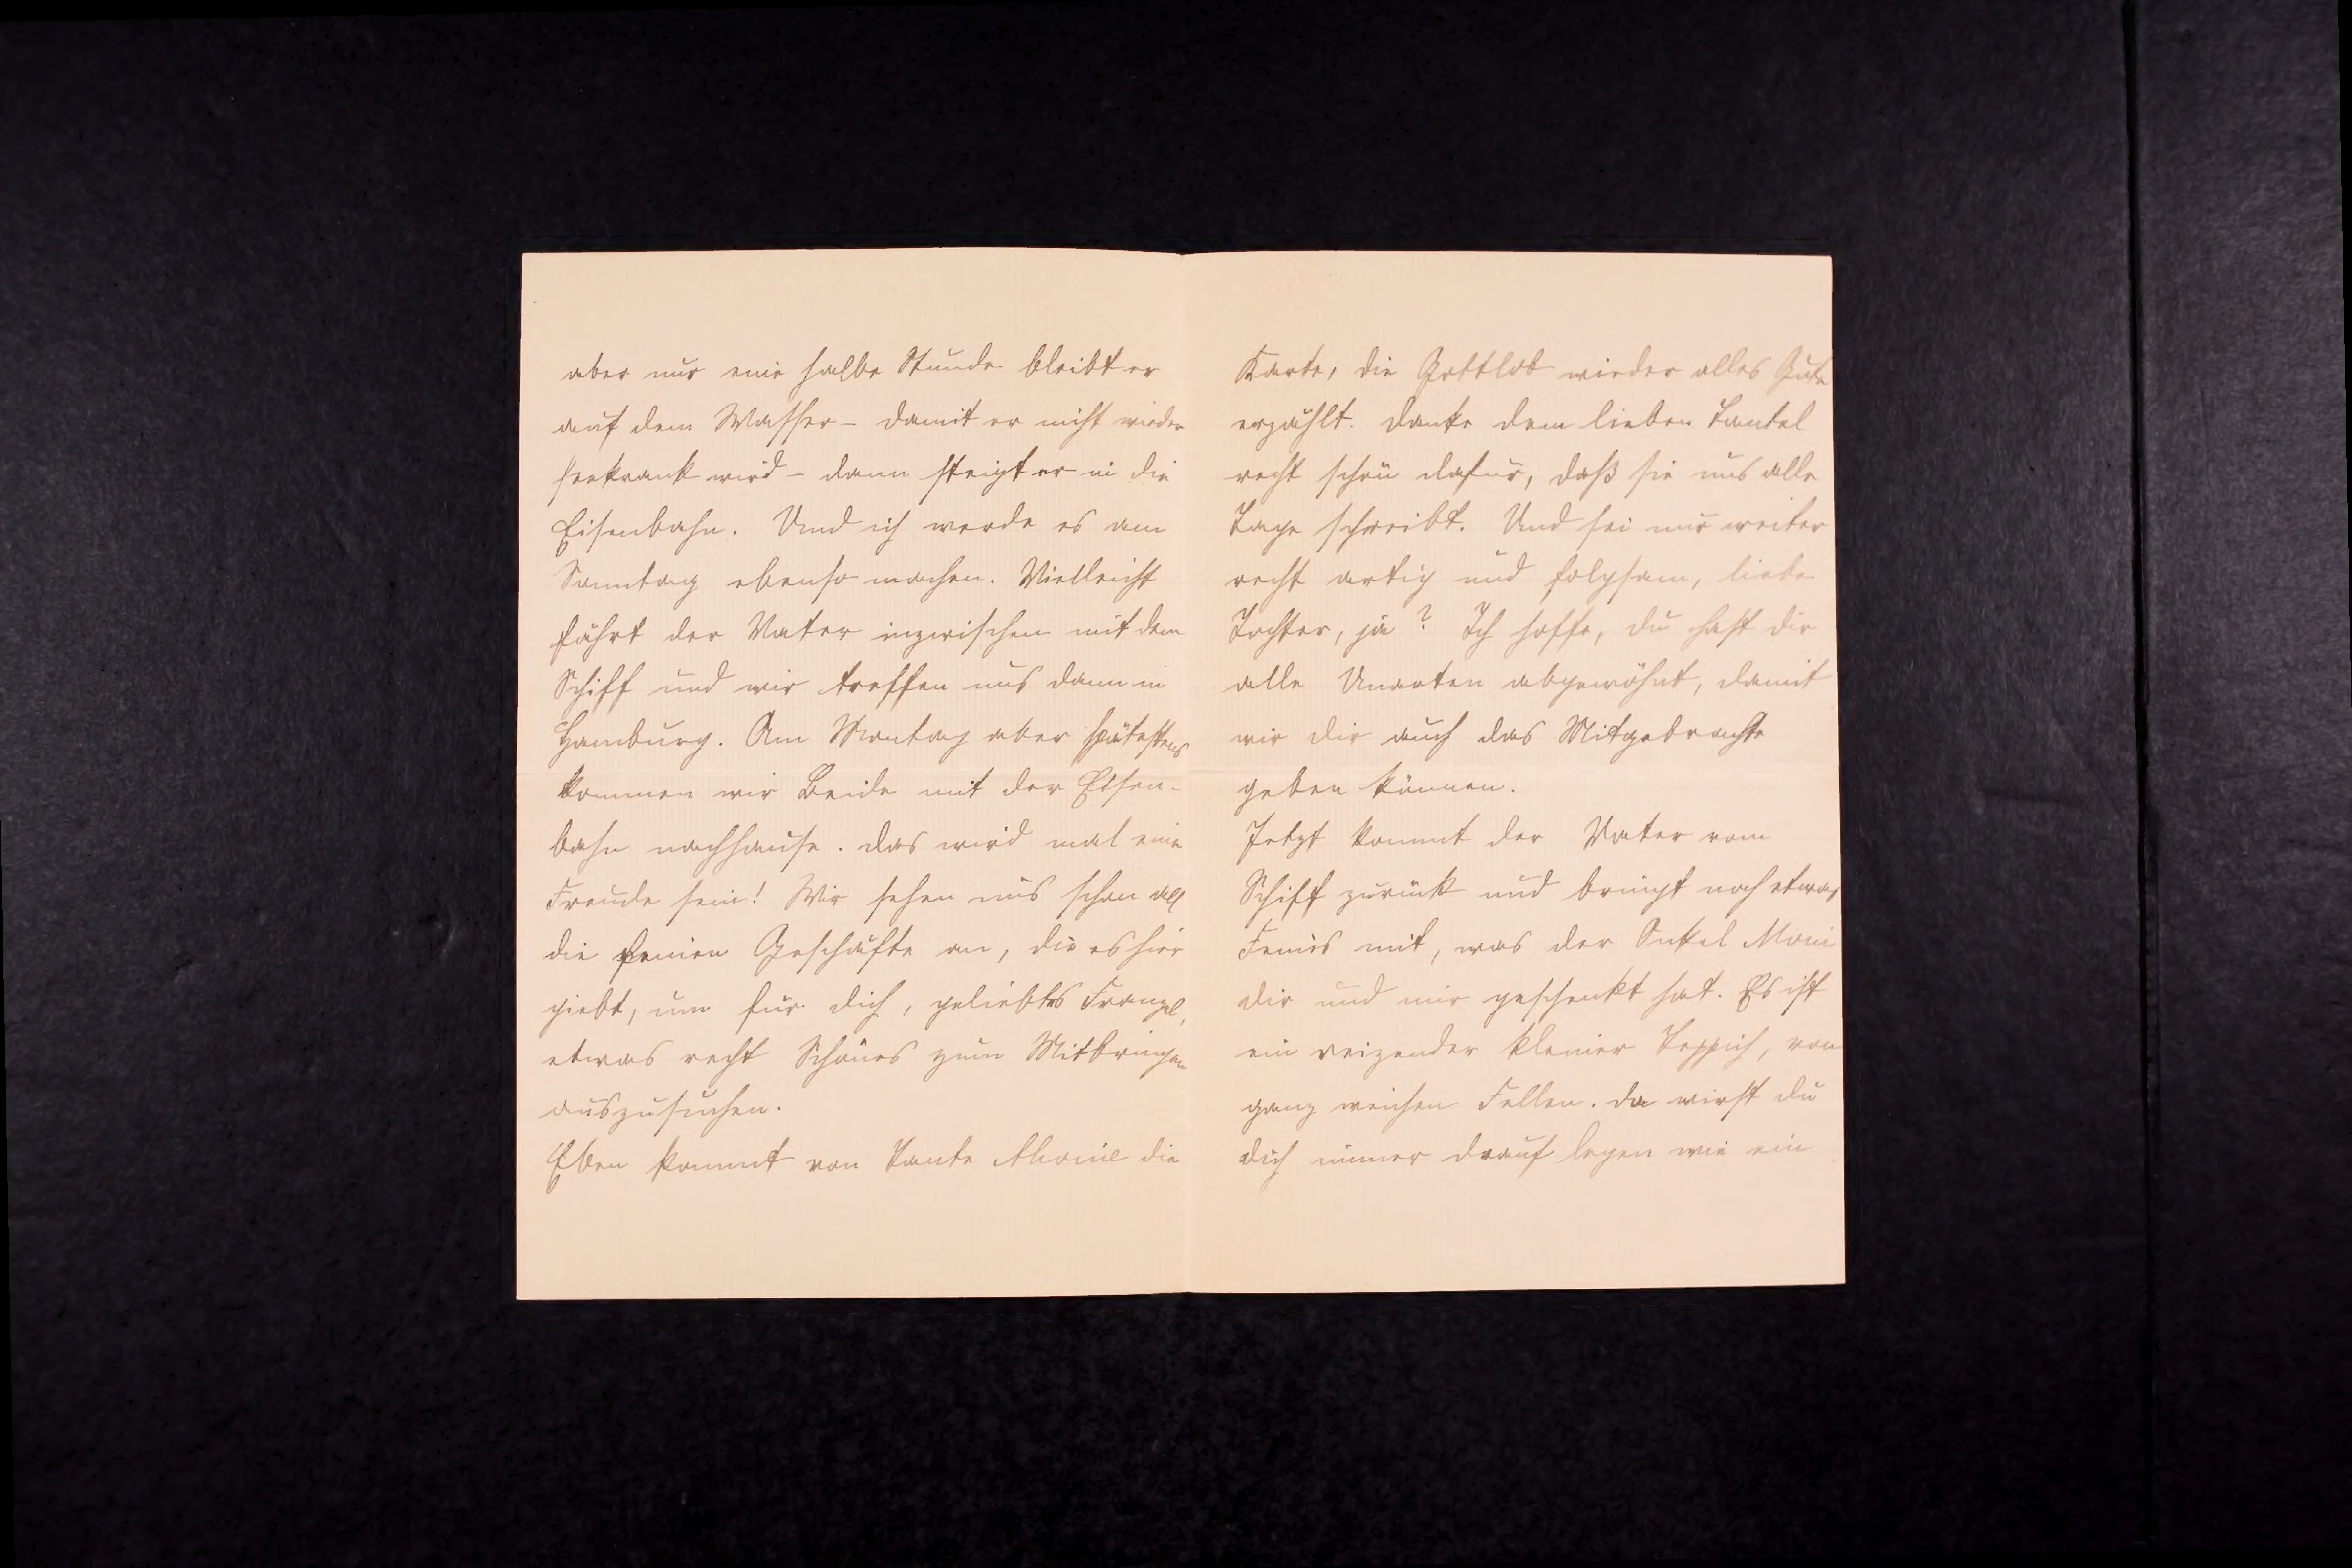 aber nur eine halbe Stunde bleibt er
auf dem Wasser – damit er nicht wieder
seekrank wird – dann steigt er in die
Eisenbahn. Und ich werde es am
Sonntag ebenso machen. Vielleicht
fährt der Vater inzwischen mit dem
Schiff und wir treffen uns dann in
Hamburg. Am Montag aber spätestens
kommen wir Beide mit der Eisen-
bahn nachhause. Das wird mal eine
Freude sein! Wir sehen uns schon all
die feinen Geschäfte an, die es hier
giebt, um für dich, geliebtes Franzel,
etwas recht Schönes zum Mitbringen
auszusuchen.
Eben kommt von Tante die
Karte, die Gottlob wieder alles Gute
erzählt. Danke dem lieben Tantel
recht schön dafür, daß sie uns alle
Tage schreibt. Und sei nur weiter
recht artig und folgsam, liebe
Tochter, ja? Ich hoffe, du hast dir
alle Unarten abgewöhnt, damit
wir dir auch das Mitgebrachte
geben können.
Jetzt kommt der Vater vom
Schiff zurück und bringt noch etwas
Feines mit, was der Onkel Moni
dir und mir geschenkt hat. Es ist
ein reizender kleiner Teppich, von
ganz weichen Fellen. Da wirst du
dich immer drauf legen wie ein